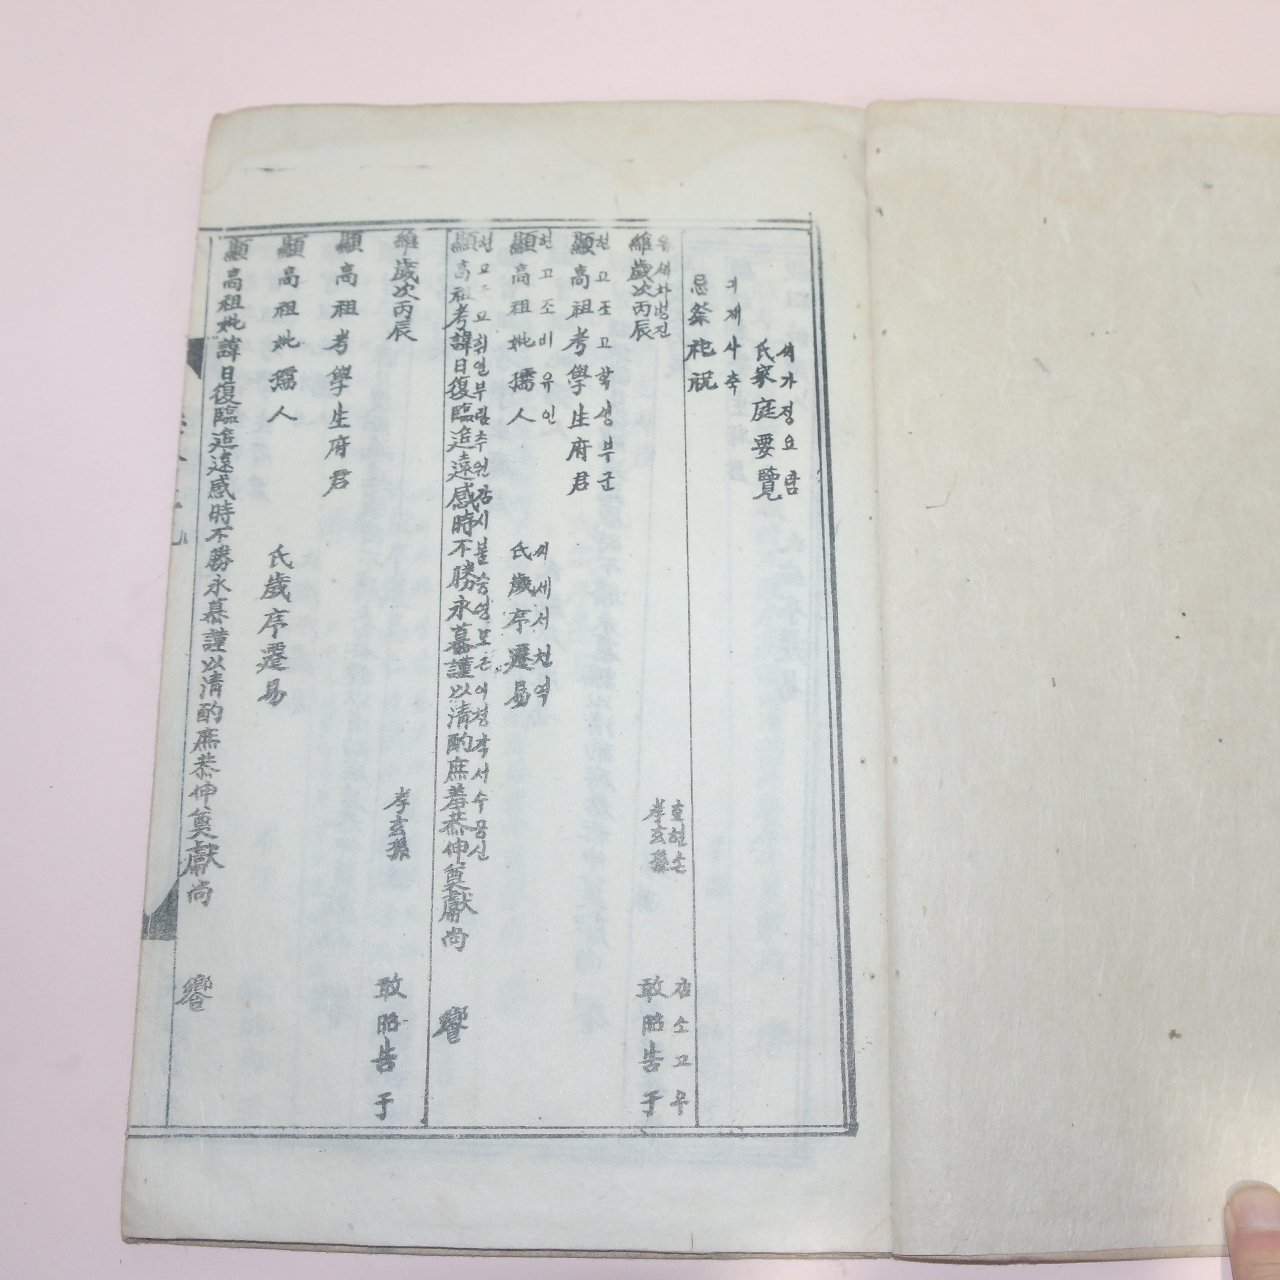 씨가정요람
氏家庭要覽
기제사축
忌祭祀祝
유세차병진 효현손 감소고우
維歲次丙辰 孝玄孫 敢昭告于
현고조고학생부군
顯高祖考學生府君
현고조비유인 씨세서천역
顯高祖妣孺人 氏歲序遷易
현고조고휘일부림추원감시불승영모근이청작서수공신
顯高祖考諱日復臨追遠感時不勝永慕謹以淸酌庶羞恭伸奠獻尙 饗
維歲次丙辰 孝玄孫 敢昭告于
顯高祖考學生府君
顯高祖妣孺人 氏歲序遷易
顯高祖妣諱日復臨追遠感時不勝永慕謹以淸酌庶恭伸奠獻尙 饗